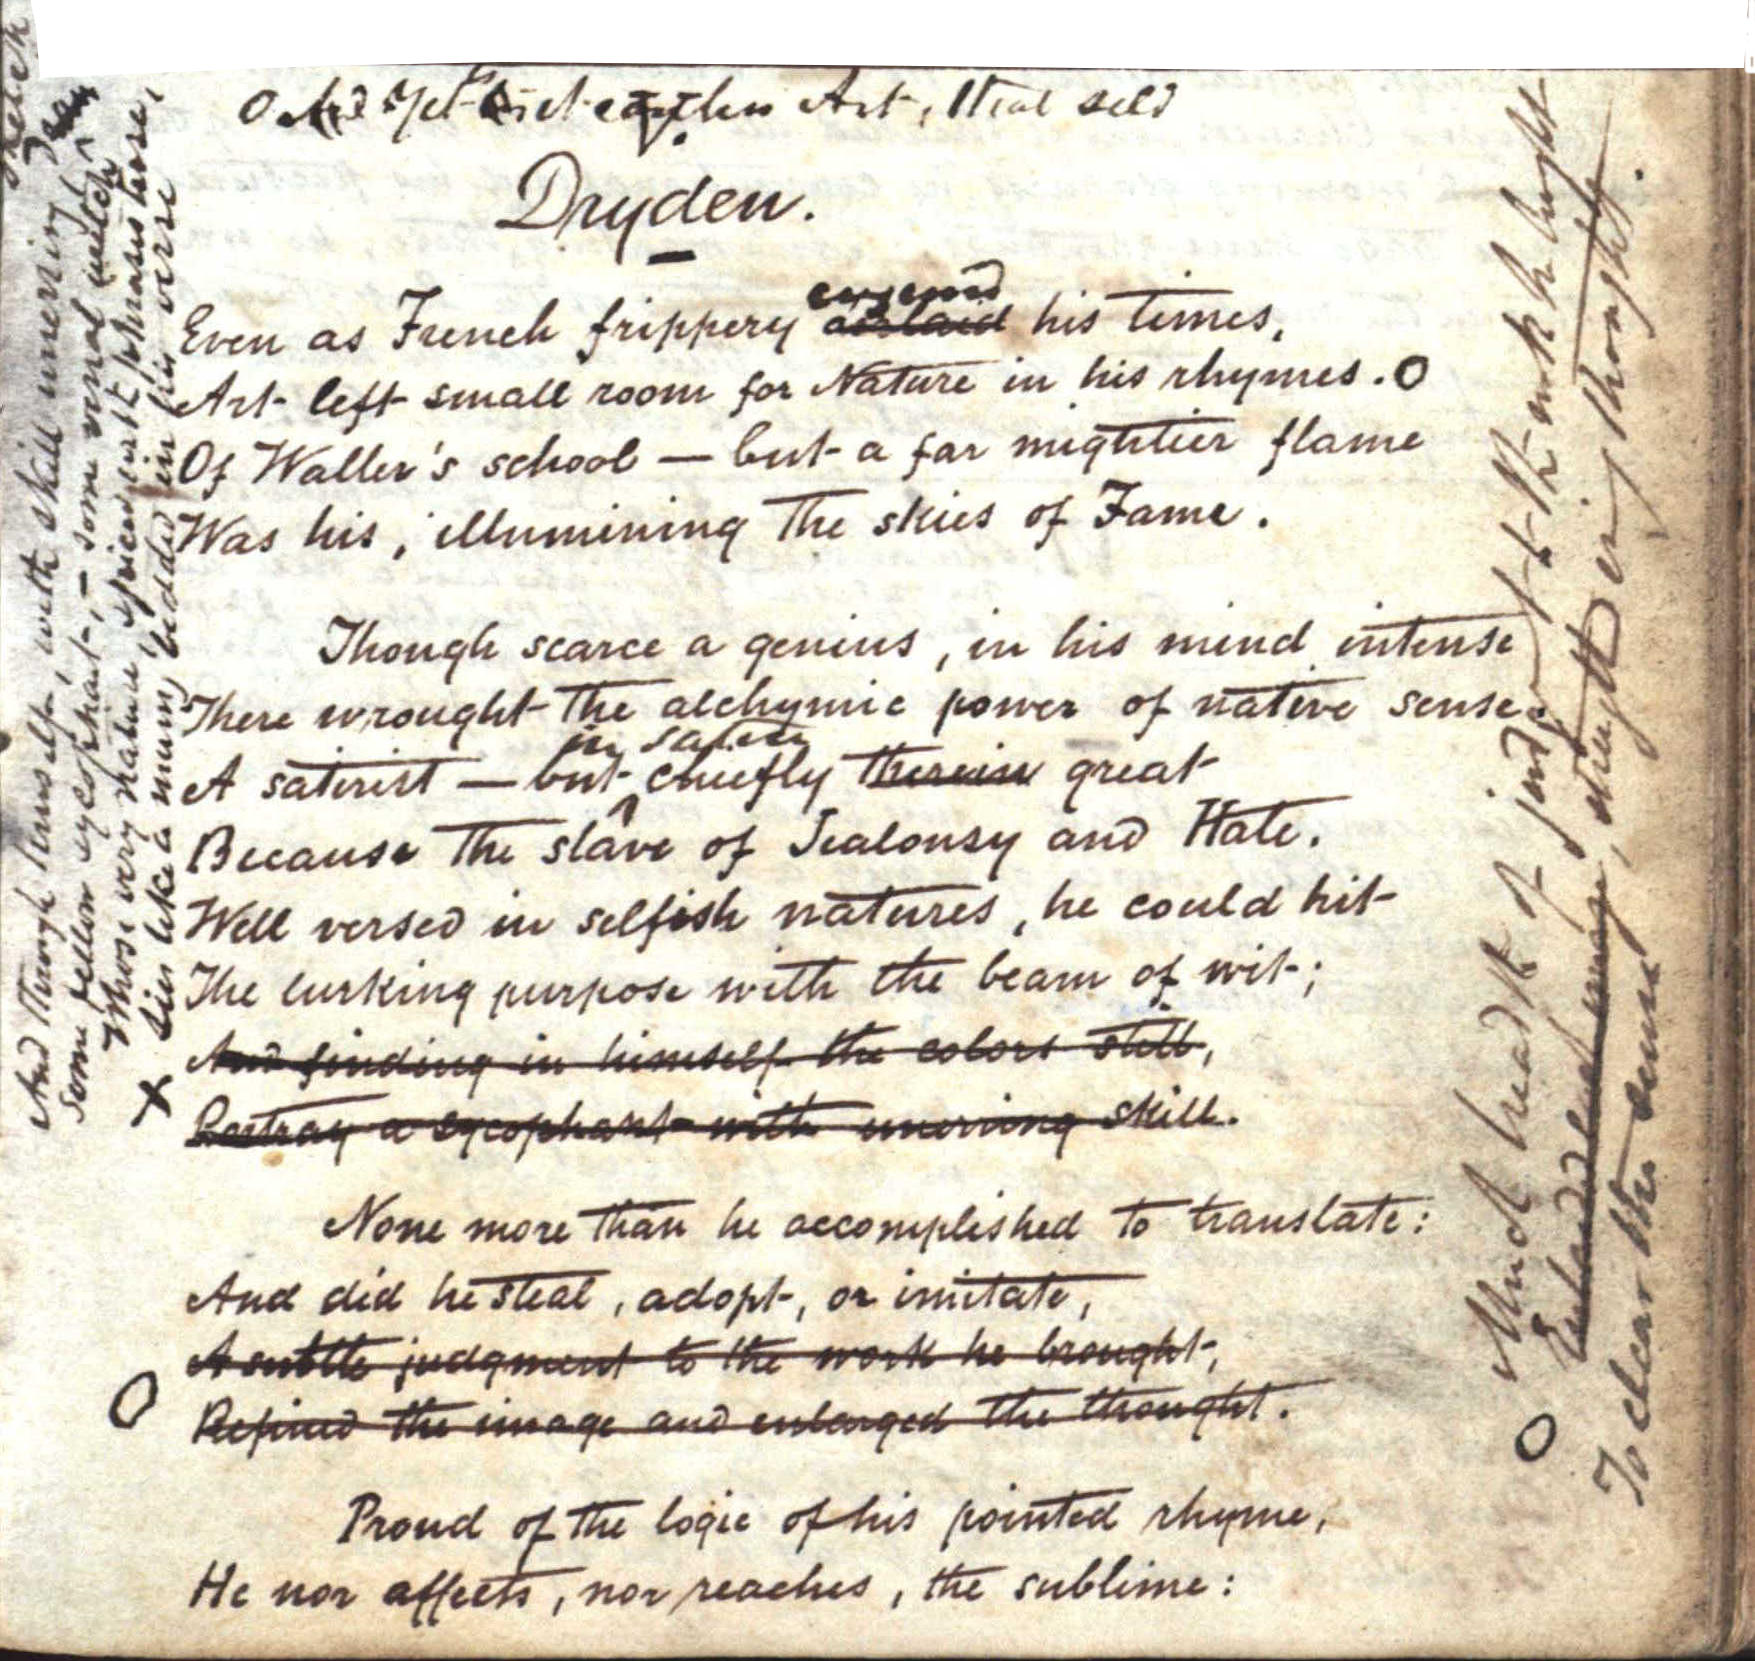 Dryden.
Even as French frippery overlaid his times,
Art left small room for Nature in his rhymes. O
Of Waller's school — but a far mightier flame
Was his, illumining the skies of Fame.
Though scarce a genius, in his mind intense
There wrought the alchymic power of native sense.
in satire
A satirist — but chiefly therein great
Because the slave of Jealousy and Hate.
Well versed in selfish natures, he could hit
The lurking purpose with the beam of wit;
And finding in himself the colors still,
Portray a sycophant with unerring skill.
None more than he accomplished to translate:
And did he steal, adopt, or imitate,
A subtle judgment to the work he brought,
Refined the image and enlarged the thought.
Proud of the logic of his pointed rhyme,
He nor affects, nor reaches, the sublime:
And through himself, with skill unerring
Some fellow sycophant, — some venal
Whose very nature, spiced with phrases
Lies like a mummy bedded in his verse
X
O
O Much heat of judgment
Enlarged the image, strengthening thought.
To clear the sense